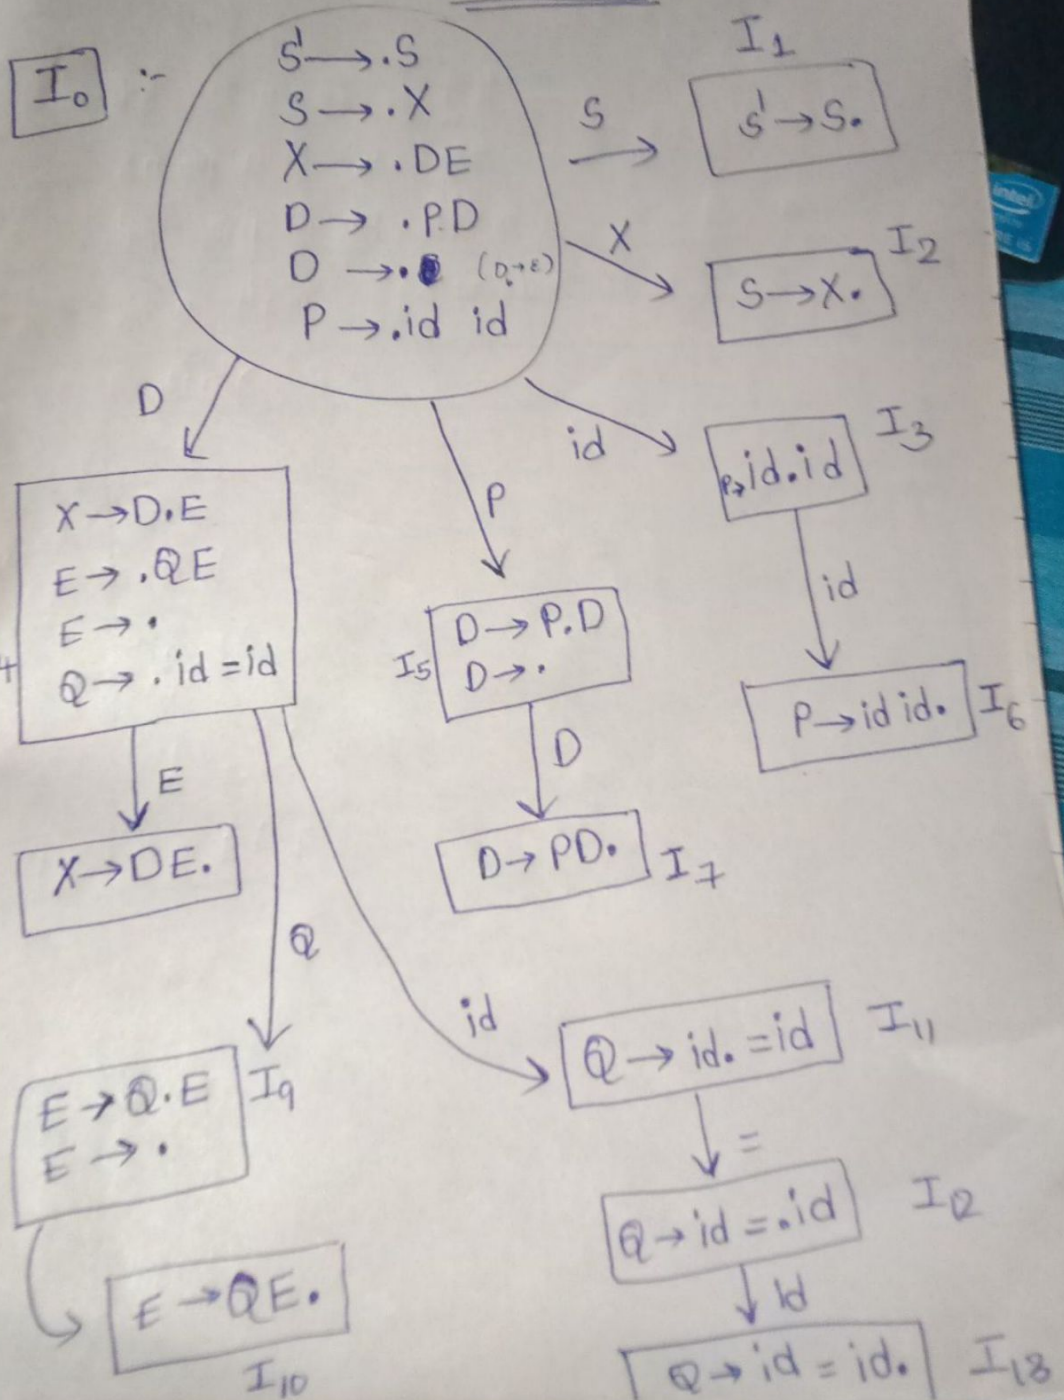 I₀ :-
S' → .S
S → .X
X → .DE
D → .P.D
D → . (D→ε)
P → .id id
S
I₁
S' → S.
X
I₂
S → X.
id
I₃
P→id.id
id
P → id id. I₆
D
X → D.E
E → .QE
E → .
Q → .id = id
E
X → DE.
P
I₅
D → P.D
D → .
D
D → PD. I₇
Q
E → Q.E
E → .
I₉
E → QE.
I₁₀
id
Q → id. = id I₁₁
=
Q → id = .id I₁₂
id
Q → id = id. I₁₃
intel